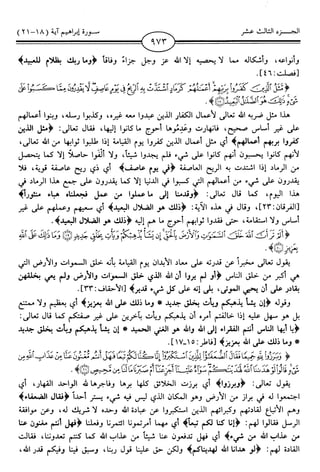 الجزء الثالث عشر
سورة إبراهيم آية (١٨-٢١)
٩٧٣
وأنواعه، وأشكاله مما لا يحصيه إلا الله عز وجل جزاءً وفاقاً ﴿وما ربك بظلام للعبيد﴾
[فصلت: ٤٦].
﴿مَّثَلُ الَّذِينَ كَفَرُوا بِرَبِّهِمْ أَعْمَالُهُمْ كَرَمَادٍ اشْتَدَّتْ بِهِ الرِّيحُ فِي يَوْمٍ عَاصِفٍ لَّا يَقْدِرُونَ مِمَّا كَسَبُوا عَلَى
شَيْءٍ ذَٰلِكَ هُوَ الضَّلَالُ الْبَعِيدُ ﴾.
هذا مثل ضربه الله تعالى لأعمال الكفار الذين عبدوا معه غيره، وكذبوا رسله، وبنوا أعمالهم
على غير أساس صحيح، فانهارت وعُدِموها أحوج ما كانوا إليها، فقال تعالى: ﴿مثل الذين
كفروا بربهم أعمالهم﴾ أي مثل أعمال الذين كفروا يوم القيامة إذا طلبوا ثوابها من الله تعالى،
لأنهم كانوا يحسبون أنهم كانوا على شيء فلم يجدوا شيئاً، ولا ألفوا حاصلاً إلا كما يتحصل
من الرماد إذا اشتدت به الريح العاصفة ﴿في يوم عاصف﴾ أي ذي ريح عاصفة قوية، فلا
يقدرون على شيء من أعمالهم التي كسبوا في الدنيا إلا كما يقدرون على جمع هذا الرماد في
هذا اليوم، كما قال تعالى: ﴿وقدمنا إلى ما عملوا من عمل فجعلناه هباء منثوراً﴾
[الفرقان: ٢٣]، وقال في هذه الآية: ﴿ذلك هو الضلال البعيد﴾ أي سعيهم وعملهم على غير
أساس ولا استقامة، حتى فقدوا ثوابهم أحوج ما هم إليه ﴿ذلك هو الضلال البعيد﴾.
﴿أَلَمْ تَرَ أَنَّ اللَّهَ خَلَقَ السَّمَاوَاتِ وَالْأَرْضَ بِالْحَقِّ إِن يَشَأْ يُذْهِبْكُمْ وَيَأْتِ بِخَلْقٍ جَدِيدٍ ۝ وَمَا ذَٰلِكَ عَلَى اللَّهِ
بِعَزِيزٍ ۝﴾.
يقول تعالى مخبراً عن قدرته على معاد الأبدان يوم القيامة بأنه خلق السموات والأرض التي
هي أكبر من خلق الناس ﴿أو لم يروا أن الله الذي خلق السموات والأرض ولم يعي بخلقهن
بقادر على أن يحيي الموتى، بلى إنه على كل شيء قدير﴾ [الأحقاف: ٣٣].
وقوله ﴿إن يشأ يذهبكم ويأت بخلق جديد * وما ذلك على الله بعزيز﴾ أي بعظيم ولا ممتنع
بل هو سهل عليه إذا خالفتم أمره أن يذهبكم ويأت بآخرين على غير صفتكم كما قال تعالى:
﴿يا أيها الناس أنتم الفقراء إلى الله والله هو الغني الحميد * إن يشأ يذهبكم ويأت بخلق جديد
* وما ذلك على الله بعزيز﴾ [فاطر: ١٥-١٧].
﴿وَبَرَزُوا لِلَّهِ جَمِيعًا فَقَالَ الضُّعَفَاءُ لِلَّذِينَ اسْتَكْبَرُوا إِنَّا كُنَّا لَكُمْ تَبَعًا فَهَلْ أَنتُم مُّغْنُونَ عَنَّا مِنْ عَذَابِ اللَّهِ مِن
شَيْءٍ قَالُوا لَوْ هَدَانَا اللَّهُ لَهَدَيْنَاكُمْ سَوَاءٌ عَلَيْنَا أَجَزِعْنَا أَمْ صَبَرْنَا مَا لَنَا مِن مَّحِيصٍ ۝﴾.
يقول تعالى: ﴿وبرزوا﴾ أي برزت الخلائق كلها برها وفاجرها لله الواحد القهار، أي
اجتمعوا له في براز من الأرض وهو المكان الذي ليس فيه شيء يستر أحداً ﴿فقال الضعفاء﴾
وهم الأتباع لقادتهم وكبرائهم الذين استكبروا عن عبادة الله وحده لا شريك له، وعن موافقة
الرسل فقالوا لهم: ﴿إنا كنا لكم تبعاً﴾ أي مهما أمرتمونا ائتمرنا وفعلنا ﴿فهل أنتم مغنون عنا
من عذاب الله من شيء﴾ أي فهل تدفعون عنا شيئاً من عذاب الله كما كنتم تعدوننا، فقالت
القادة لهم: ﴿لو هدانا الله لهديناكم﴾ ولكن حق علينا قول ربنا، وسبق فينا وفيكم قدر الله،